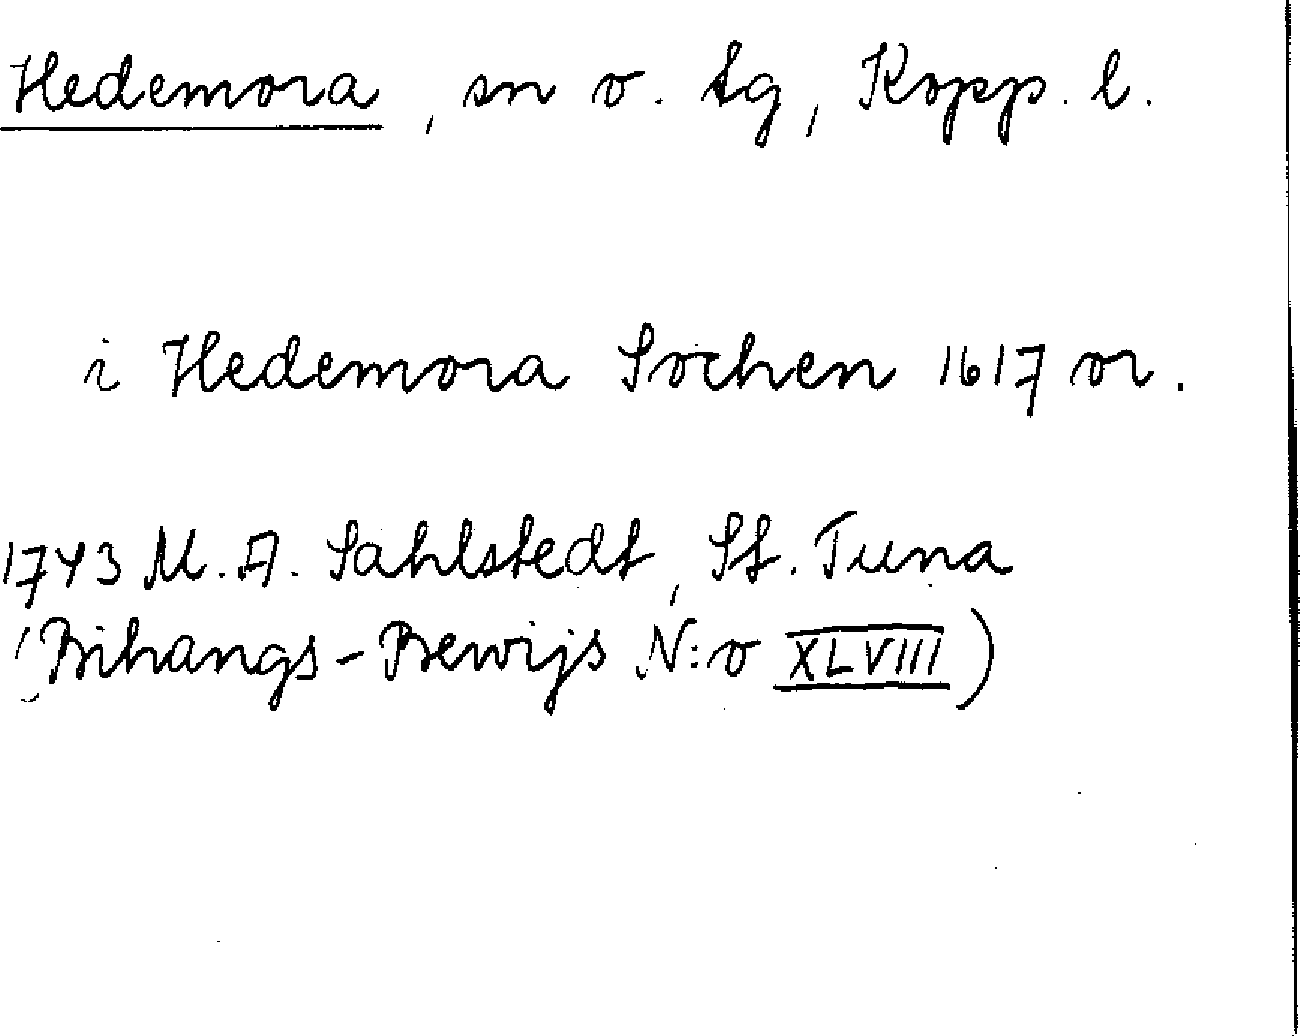 Hedemora, sn o. tg, Kopp. l.
i Hedemora Sochen 1617 or.
1743 M. A. Sahlstedt, St. Tuna
(Bihangs-Bewijs N:o XLVIII)